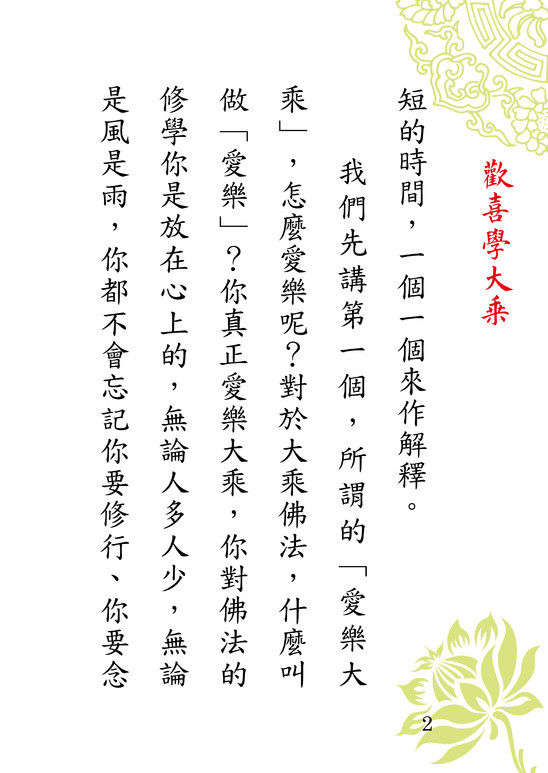 歡喜學大乘
短的時間，一個一個來作解釋。
我們先講第一個，所謂的「愛樂大
乘」，怎麼愛樂呢？對於大乘佛法，什麼叫
做「愛樂」？你真正愛樂大乘，你對佛法的
修學你是放在心上的，無論人多人少，無論
是風是雨，你都不會忘記你要修行、你要念
2